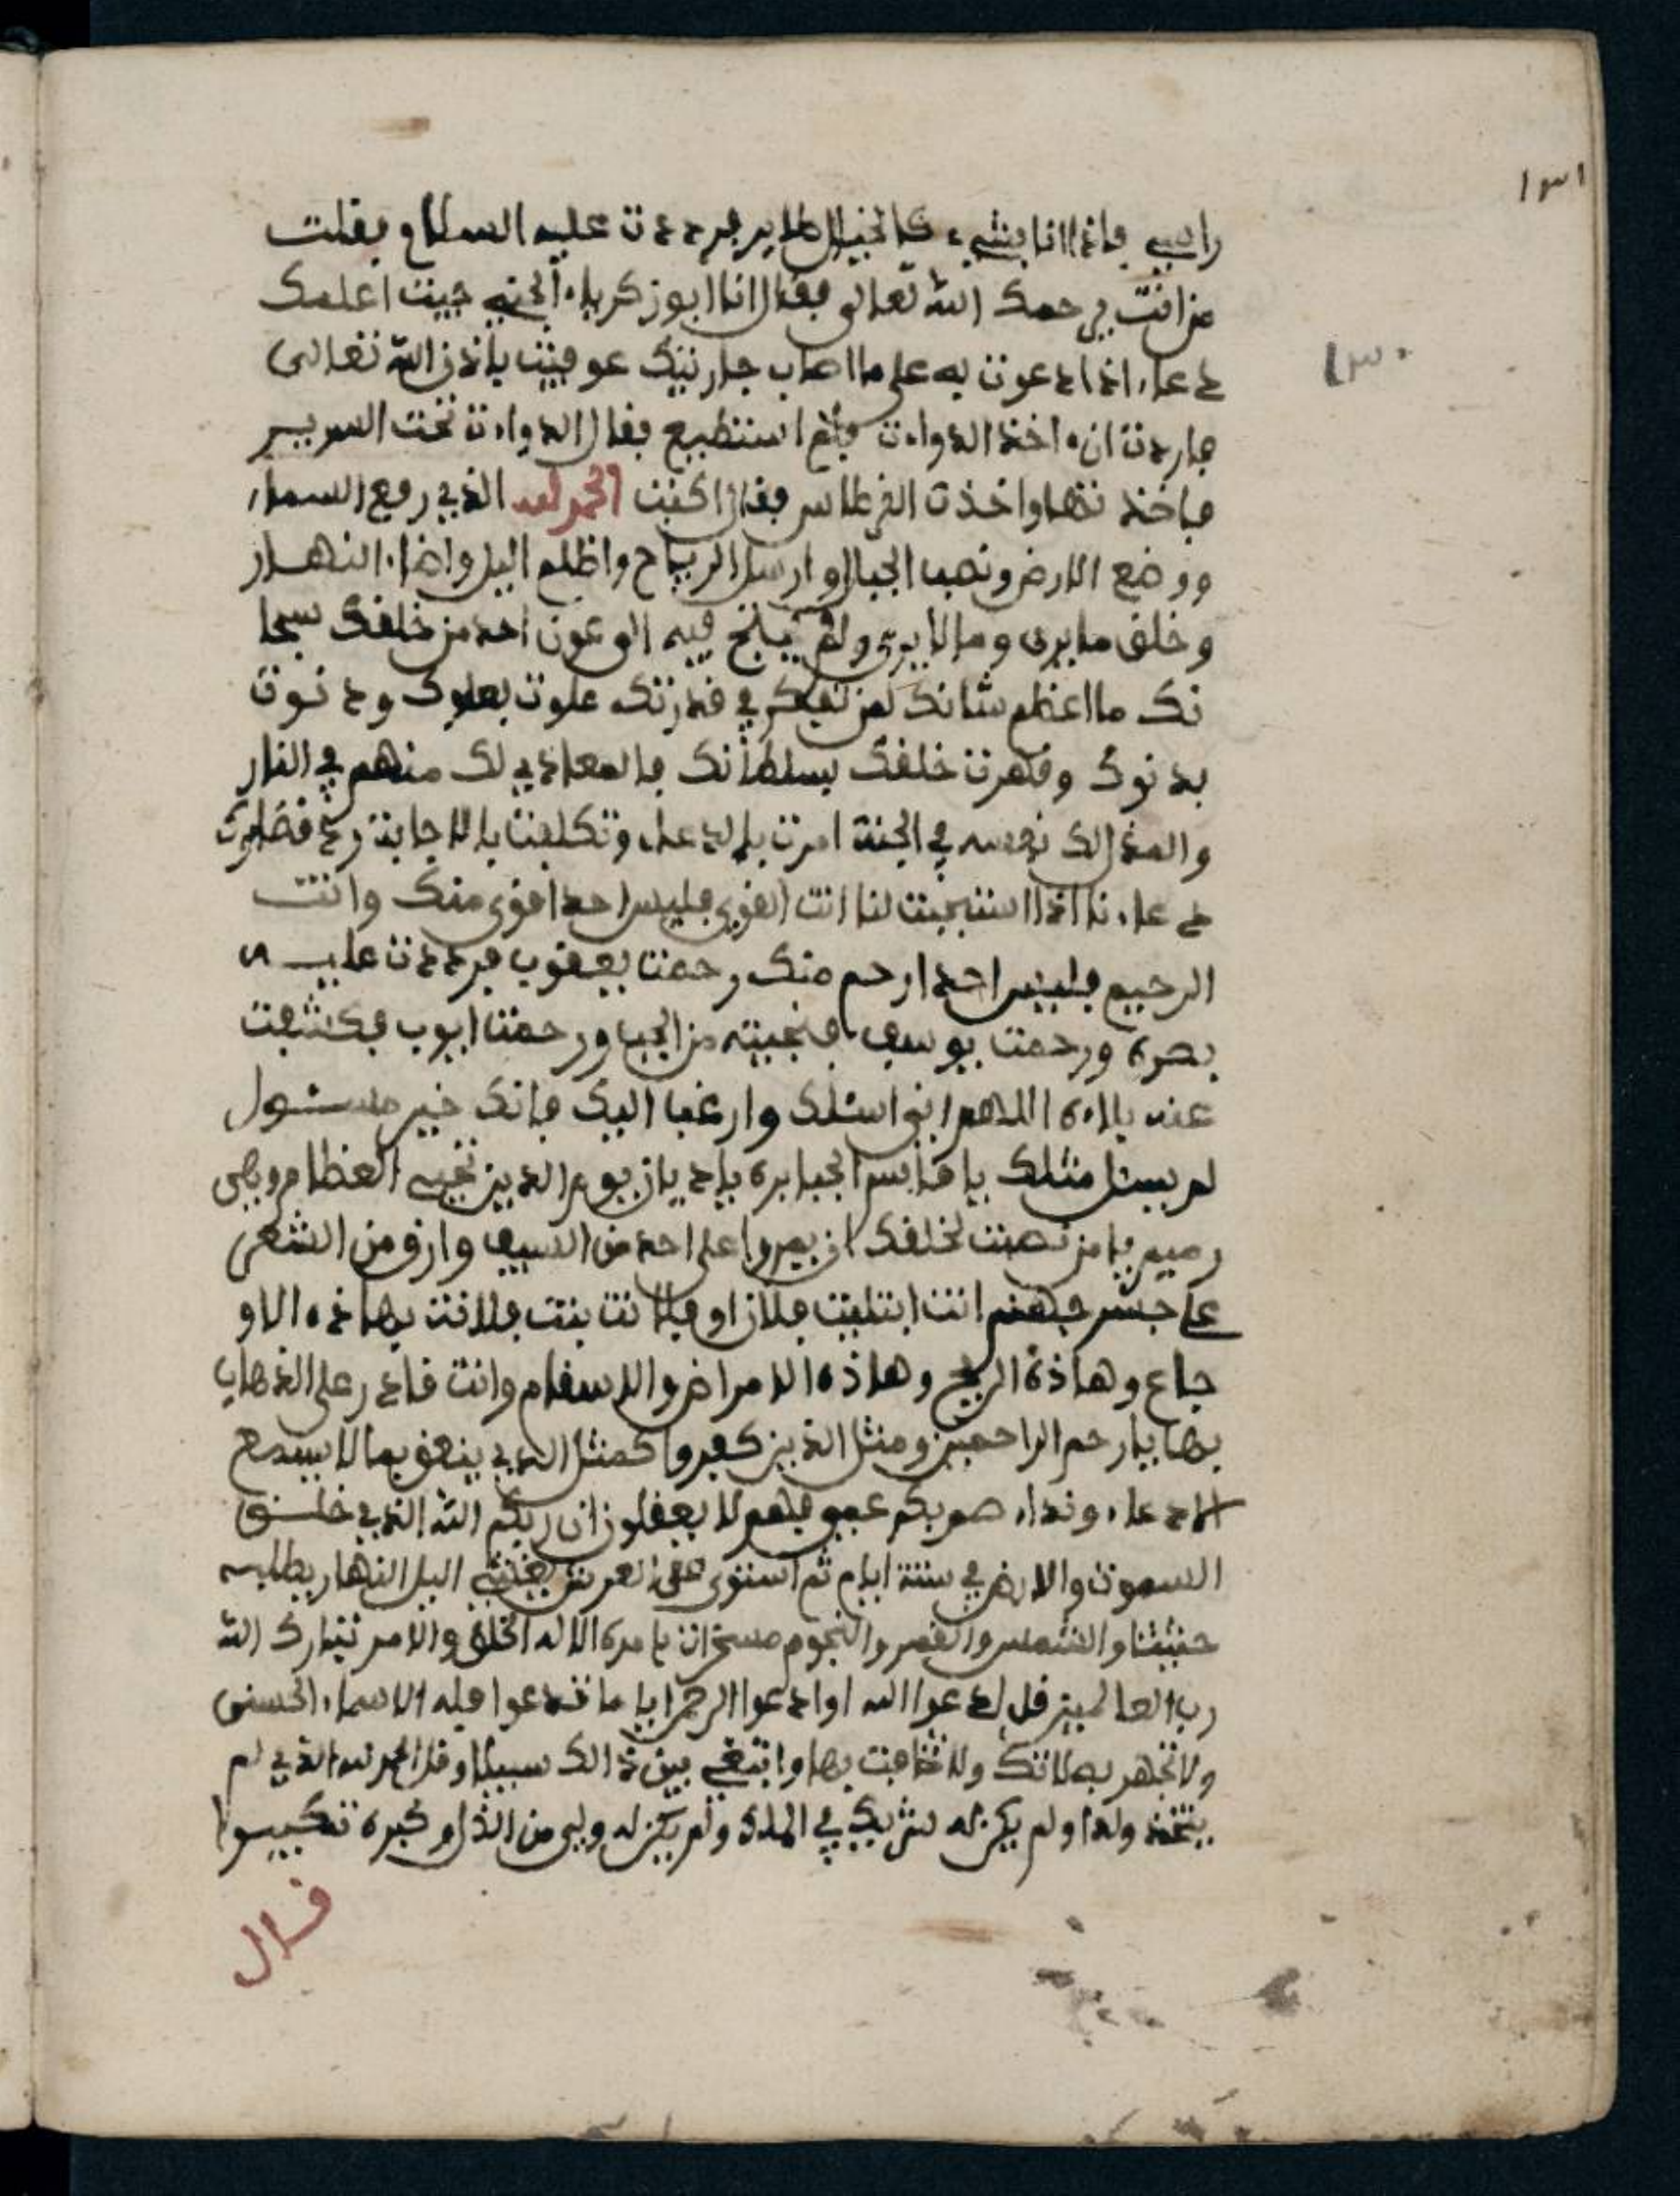 ١٣١
راسي فاذا انا بشيء كالخيال الطاير فرددت عليه السلام وفلت
من انت يرحمك الله تعالى فقال انا ابو زكرياء الجني جيت اعلمك
١٣٠
دعاء اذا دعوت به على ما اصاب جاريتك عوفيت باذن الله تعالى
فاردت ان ءاخذ الدواءت فلم استطيع فقال الدواءت تحت السرير
فاخذتها واخذت القرطاس فقال اكتب الحمد لله الذي رفع السماء
ووضع الارض ونصب الجبال وارسل الرياح واظلم اليل واضاء النهار
وخلق ما يرى وما لا يرى ولم يحتج فيه الى عون احد من خلقك سبحا
نك ما اعظم شانك لمن تفكر في قدرتك علوت بعلوك ودنوت
بدنوك وقهرت خلقك بسلطانك فالمعادي لك منهم في النار
والمذلل لك نفسه في الجنة امرت بالدعاء وتكلفت بالاجابة
دعاءنا اذا استجبت لنا انت القوي فليس احد اقوى منك وانت
الرحيم فليس احد ارحم منك رحمت يعقوب فرددت عليه
بصره ورحمت يوسف فنجيته من الجب ورحمت ايوب فكشفت
عنه بلاءه اللهم اني اسئلك وارغب اليك فانك خير مسئول
لم يسئل مثلك يا قابس الجبابرة يا ديان يوم الدين تحيي العظام وهي
رميم يا من نصبت لخلقك ان يمروا على احد من السيف وارق من الشعر
على جسر جهنم انت ابتليت فلان او فلانت بنت فلانت بهاذه الاو
جاع وهاذه الريح وهاذه الامراض والاسقام وانت قادر على الذهاب
بها يا ارحم الراحمين ومثل الذين كفروا كمثل الذي ينعق بما لا يسمع
الا دعاء ونداء صم بكم عمي فهم لا يعقلون ان ربكم الله الذي خلق
السموت والارض في ستة ايام ثم استوى على العرش يغشي اليل النهار يطلبه
حثيثا والشمس والقمر والنجوم مسخرات بامره الا له الخلق والامر تبارك الله
رب العالمين قل ادعوا الله او ادعوا الرحمن ايا ما تدعوا فله الاسماء الحسنى
ولا تجهر بصلاتك ولا تخافت بها وابتغي بين ذالك سبيلا وقل الحمد لله الذي لم
يتخذ ولدا ولم يكن له شريك في الملك ولم يكن له ولي من الذل وكبره تكبيرا
قال